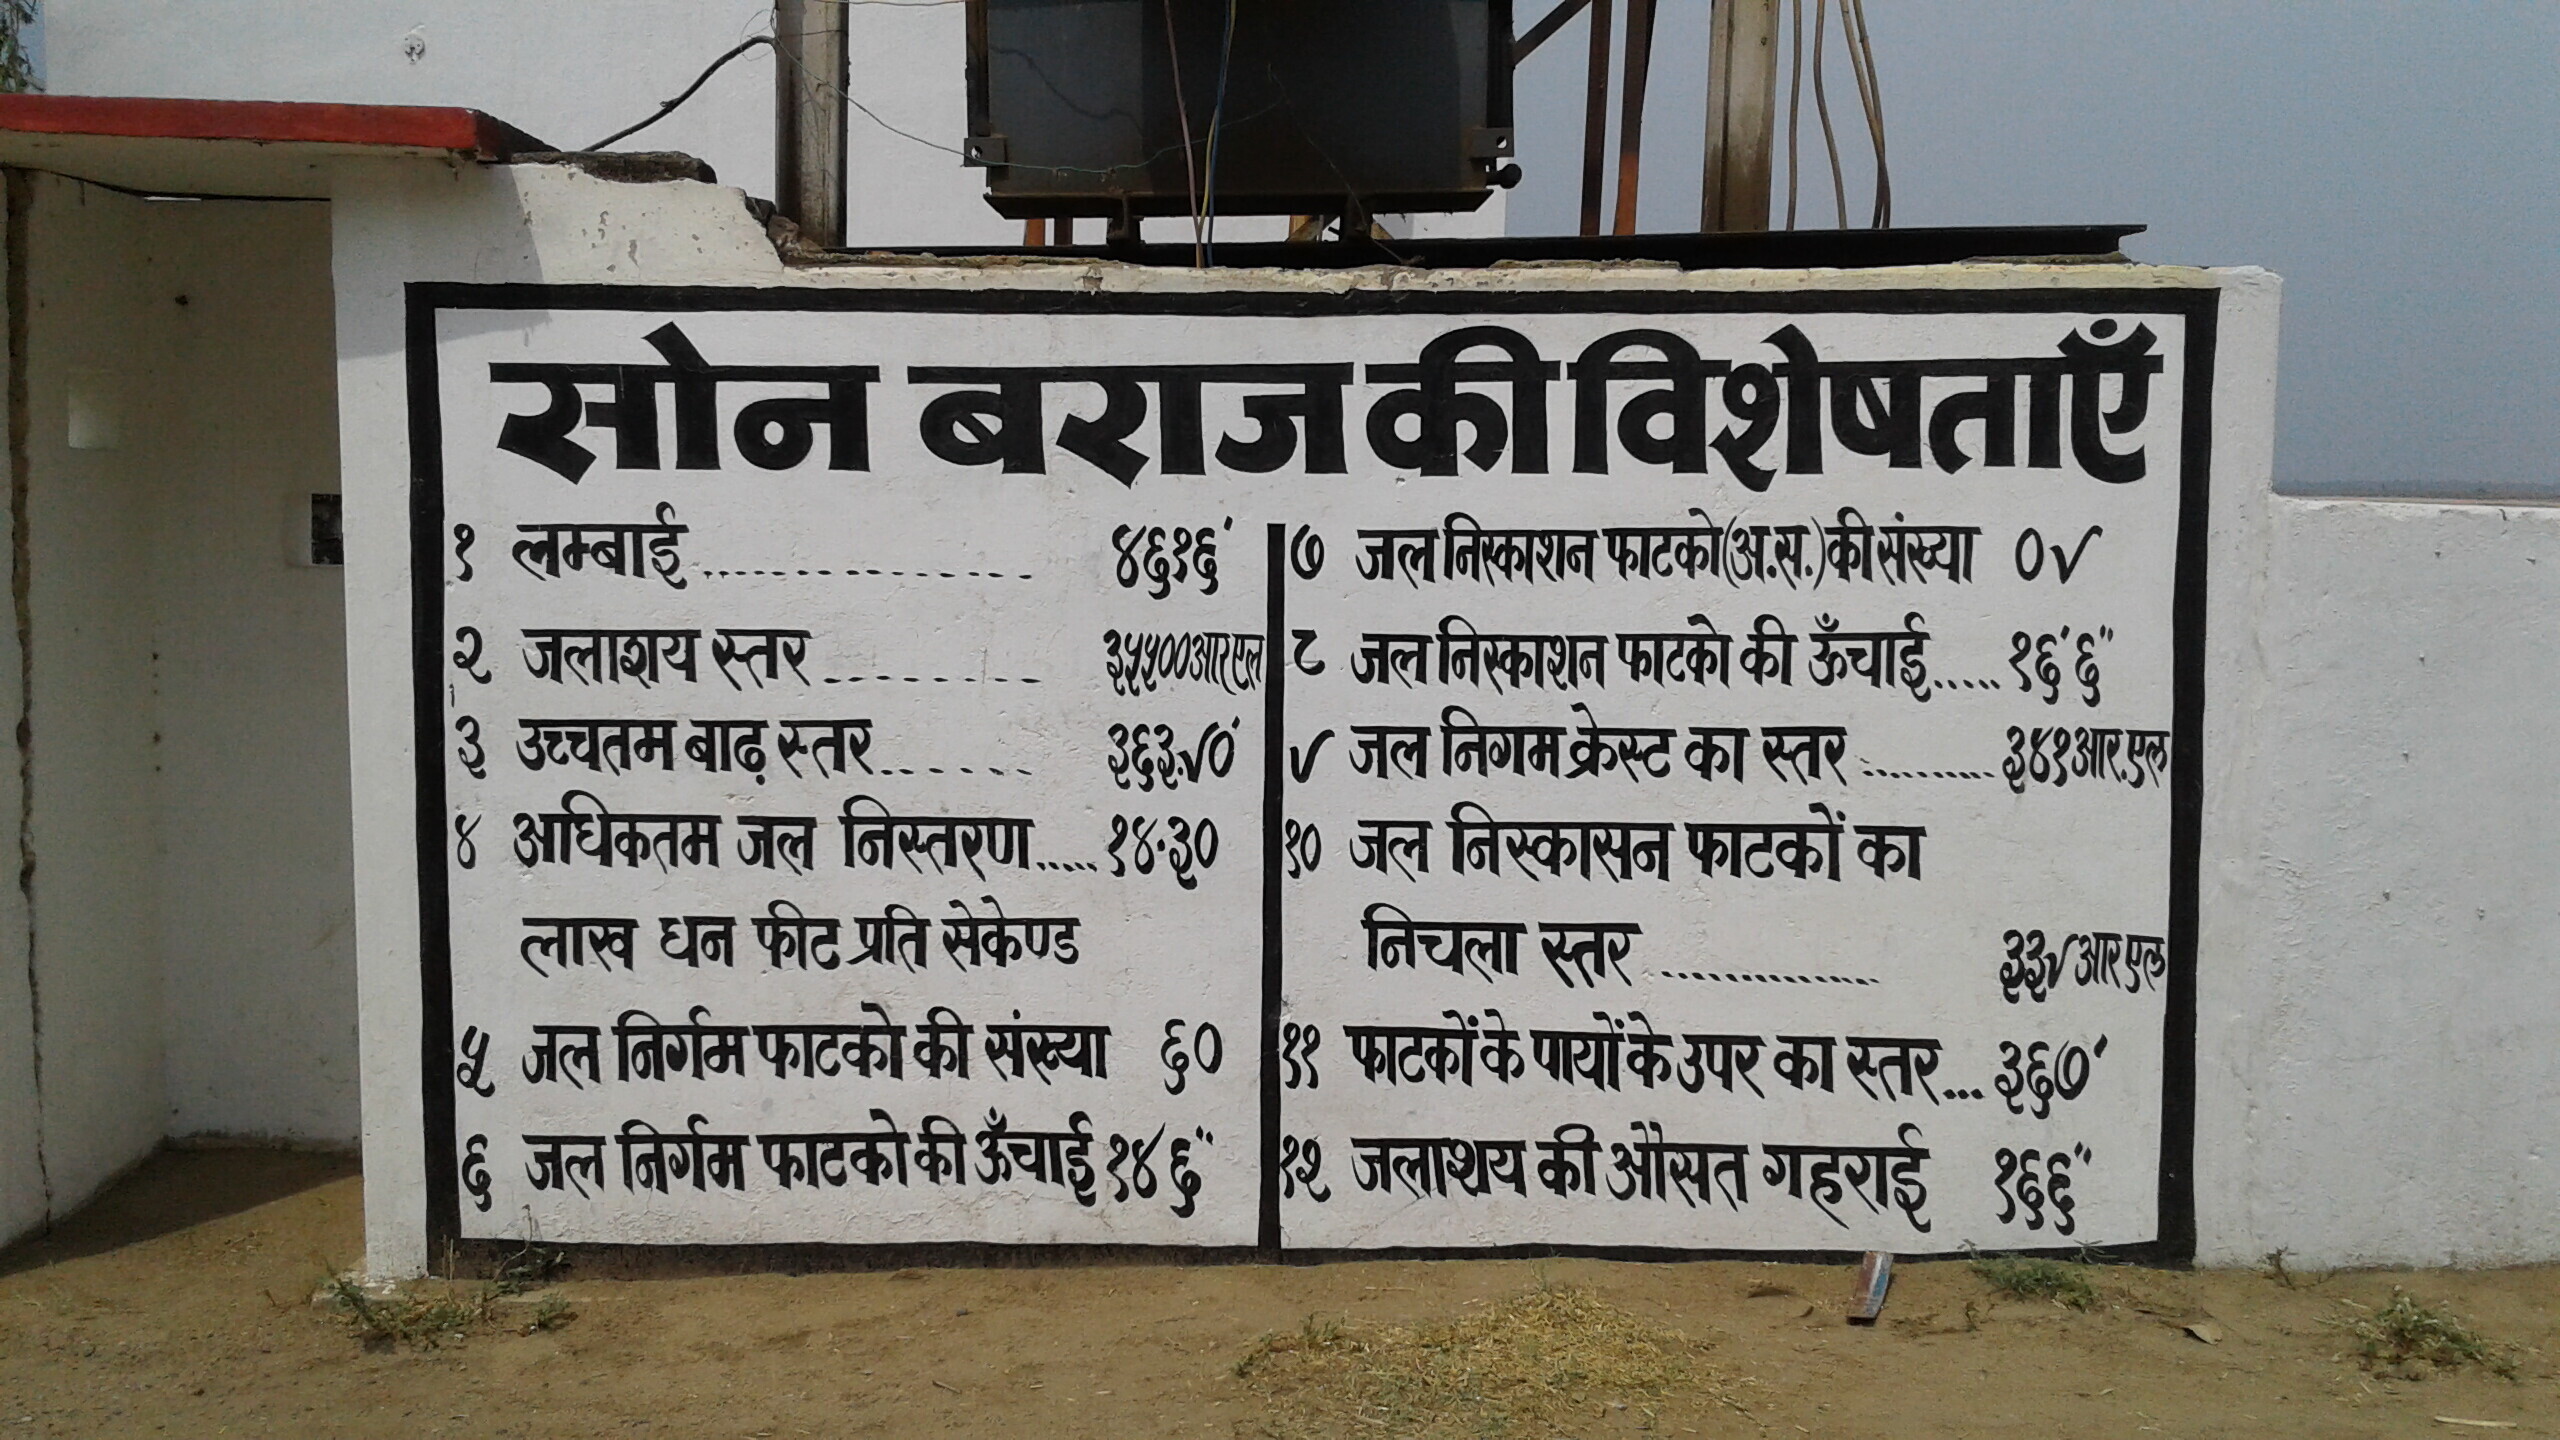 सोन बराज की विशेषताएँ
१ लम्बाई................ ४६१६'
२ जलाशय स्तर......... ३५५००आर एल
३ उच्चतम बाढ़ स्तर....... ३६३.९०'
४ अधिकतम जल निस्तरण.....१४.३०
लाख धन फीट प्रति सेकेण्ड
५ जल निर्गम फाटको की संख्या ६०
६ जल निर्गम फाटको की ऊँचाई १४ ६"
७ जल निस्काशन फाटको(अ.स.)की संख्या ०९
८ जल निस्काशन फाटको की ऊँचाई..... १६'६"
९ जल निगम क्रेस्ट का स्तर..........३४१आर.एल
१० जल निस्कासन फाटकों का
निचला स्तर............... ३३९आर एल
११ फाटकों के पायों के उपर का स्तर...३६७'
१२ जलाशय की औसत गहराई १६६"